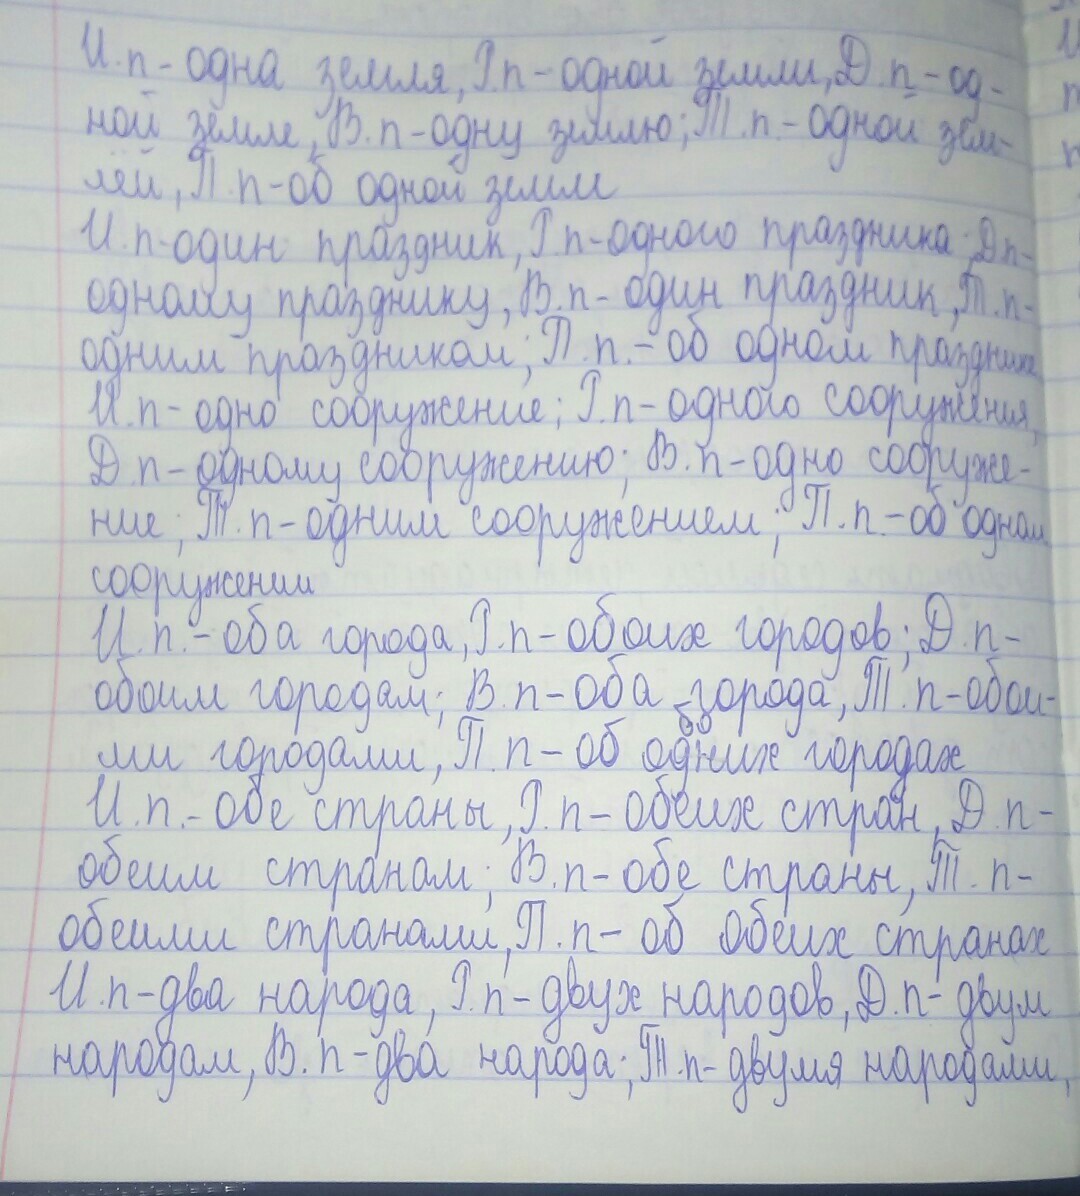 И.п-одна земля, Р.п-одной земли, Д.п-од-
ной земле, В.п-одну землю; Т.п.-одной зем-
лёй, П.п-об одной земле
И.п-один праздник, Р.п-одного праздника; Д.п-
одному празднику, В.п-один праздник, Т.п-
одним праздником; П.п.-об одном празднике
И.п-одно сооружение; Р.п-одного сооружения,
Д.п-одному сооружению; В.п-одно сооруже-
ние; Т.п-одним сооружением; П.п-об одном
сооружении
И.п.-оба города, Р.п-обоих городов; Д.п-
обоим городам; В.п-оба города, Т.п-обои-
ми городами, П.п-об одних городах
И.п.-обе страны, Р.п-обеих стран, Д.п-
обеим странам; В.п-обе страны, Т.п-
обеими странами, П.п-об обеих странах
И.п-два народа, Р.п-двух народов, Д.п-двум
народам, В.п-два народа; Т.п-двумя народами,